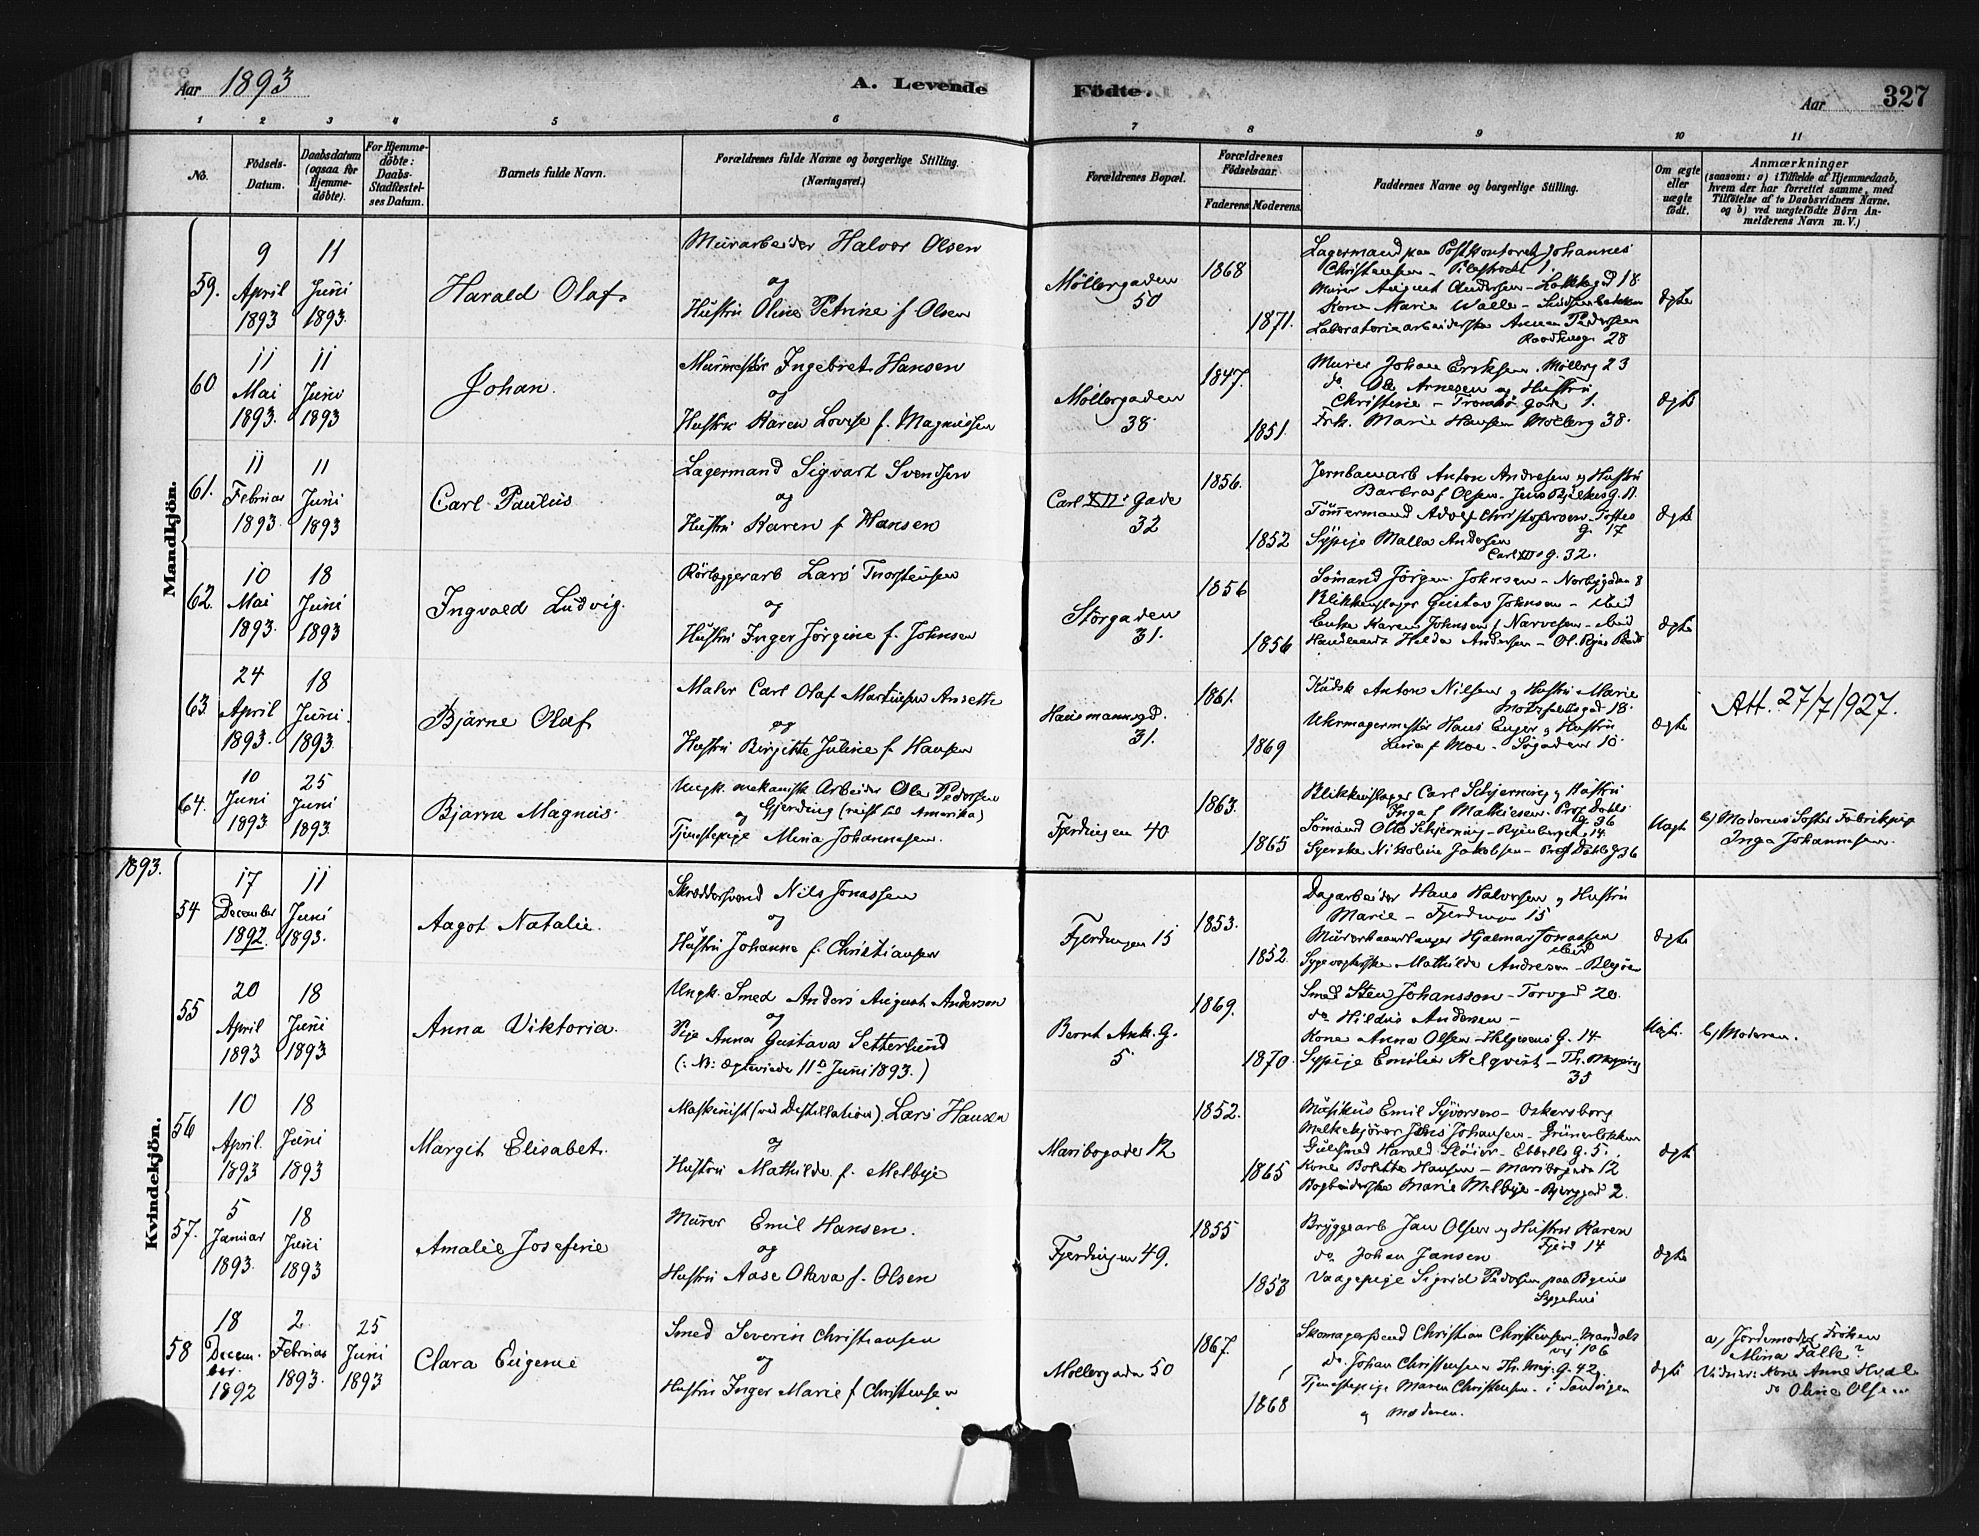 Aar 1893
A. Levende
Födte.
Aar
327
1 2 3 4 5 6 7 8 9 10 11
No.
Födsels-
Datum.
Daabsdatum
(ogsaa for
Hjemme-
döbte).
For Hjemme-
döbte:
Daabs-
Stadfæstel-
ses Datum.
Barnets fulde Navn.
Forældrenes fulde Navne og borgerlige Stilling.
(Næringsvei.)
Forældrenes Bopæl.
Forældrenes
Födselsaar.
Faderens.
Moderens.
Faddernes Navne og borgerlige Stilling.
Om ægte
eller
uægte
födt.
Anmærkninger
(saasom: a) i Tilfælde af Hjemmedaab,
hvem der har forrettet samme, med
Tilföielse af to Daabsvidners Navne.
og b) ved uægtefödte Börn An-
melderens Navn m. V.)
Mandkjön.
59.
9
April
1893
11
Juni
1893.
Harald Olaf.
Murarbeider Halvor Olsen
og
Hustru Oline Petrine f Olsen
Møllergaden
50
1868
1871.
Lagermand paa Postkontoret Johannes
Christensen - Pilestrædt 1.
Murer August Andersen - Løkkegd 18.
Kone Marie Walle -
Laboratoriearbeiderske Anna Pedersen
28
Ægte
60
11
Mai
1893.
11
Juni
1893
Johan.
Murmester Ingebret Hansen
og
Hustru Karen Lovise f. Magnussen
Møllergaden
38.
1847.
1851.
Murer Johan Eriksen. Møllerg 23
do. Ole Arnesen og Hustru
Christine - Tromsø Gade 1.
Frk. Marie Hansen Møllerg 38.
Ægte
61.
11
Februar
1893.
11
Juni
1893
Carl Paulus
Lagermand Sigvart Svendsen
og
Hustru Karen f Hansen
Carl XIIs Gade
32
1856.
1852
Jernbanearb Anton Andresen og Hustru
Barbra f Olsen. Jens Bjelkes G. 11.
Tömmermand Adolf Christofersen - Toftes
G. 17
Sypige Malla Andersen
Carl XIIs G. 32.
Ægte
62.
10
Mai
1893.
18
Juni
1893
Ingvald Ludvig.
Rørlæggerarb Lars Thorstensen
og
Hustru Inger Jørgine f. Johnsen
Storgaden
31.
1856
1856
Sömand Jörgen Johnsen - Norbygaden 8
Blikkenslager Gustav Johnsen - ibid
Enke Karen Johnsen f Narvesen - ibid
Hulda Andersen - Ol. Ryes Plads
Ægte
63
24
April
1893.
18
Juni.
1893.
Bjarne Olaf
Maler Carl Olaf Martinsen Ansette
og
Hustru Birgitte Juline f. Hansen
Hausmannsgd.
31.
1861.
1869
Kudsk Anton Nilsen og Hustru Marie
Motzfeldtsgad 18.
Uhrmagermester Hans Enger og Hustru
f Moe - Søgaden 10.
Ægte
Att. 27/7 1927.
64.
10
Juni
1893
25
Juni
1893.
Bjarne Magnus.
Ungk. mekanisk Arbeider Ole Pedersen
Gjerding (reist til Amerika)
og
Tjenestepige Mina Johannesen.
Fjerdingen 40
1863.
1865
Blikkenslager Carl Schjerning og Hustru
Inga f Mathiesen. Prof Dahls
G. 36
Sömand Otto Schjerning - 14.
Syerske Nikoline Jakobsen - Prof Dahls G 36
Uægte
b) Moderens Søster Fabrikpige
Inga Johannesen.
1893.
Kvindekjön.
54
17
December
1892
11
Juni
1893.
Aagot Natalie.
Skræddersvend Nils Jonassen
og
Hustru Johanne f. Christiansen
Fjerdingen 15
1853.
1852.
Dagarbeider Hans Halvorsen og Hustru
Marie - Fjerdingen 15
Murerhaandlanger Hjalmar Jonassen
ibid
Sygevogterske Mathilde Andresen -
Ægte
55
20
April
1893
18
Juni
1893
Anna Viktoria.
Ungk. Smed Anders August Anderson
og
Pige Anna Gustava Setterlund
(: NB: Ægteviede 11te Juni 1893.)
Bernt Ank. G.
5
1869.
1870.
Smed Sten Johansson - Torvgd 20.
do Hildus Andersen -
Kone Anna Olsen - Helgesens G. 14
Sypige Emilie Kelqvist - Th. Meyersg
35
Uægte.
b) Moderen.
56
10
April.
1893
18
Juni
1893
Margit Elisabet.
Maskinist (ved Destillation) Lars Hansen
og
Hustru Mathilde f. Melbye
Maribogade 12
1852.
1865
Musikus Emil Syversen - Oskarsborg
Melkekjører Jens Johansen - Grünerløkken
Guldsmed Harald Støier - Ebbells G. 5.
Kone Bolette Hansen - Maribogade 12
Bogbinderske Marie Melbye - Bjerggad 2.
Ægte
57.
5
Januar
1893.
18
Juni
1893
Amalie Josefine
Murer Emil Hansen.
og
Hustru Aase Olava f. Olsen
Fjerdingen 49.
1855
1853
Bryggearb Jan Olsen og Hustru Karen
Fjerd 14
do Johan Jansen
Vaagepige Sigrid Pedersen paa Byens
Sygehus
Ægte
58
18
Decem-
ber
1892
2
Februar
1893.
25
Juni
1893
Clara Eugenie
Smed Severin Christiansen
og
Hustru Inger Marie f Christensen
Møllergaden 50
1867.
1868
Skomagersvend Christian Christensen - Mandals
vej 10 b
do. Johan Christensen Th. Meij. G. 42
Tjenestepige Maren Christensen. i Sandvigen
og Moderen.
Ægte
a) Jordemoder Frøken
Mina Falle?
Vidner: Kone Anne Hval
do Oline Olsen